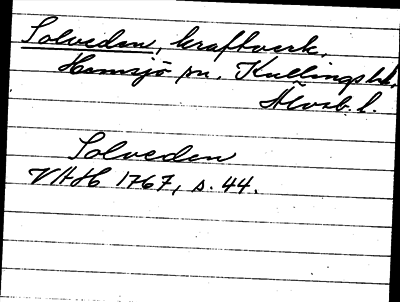 Solveden, kraftverk,
Hemsjö sn. Kullings hd.
Älvsb. l.
Solveden
VAH 1767, s. 44.